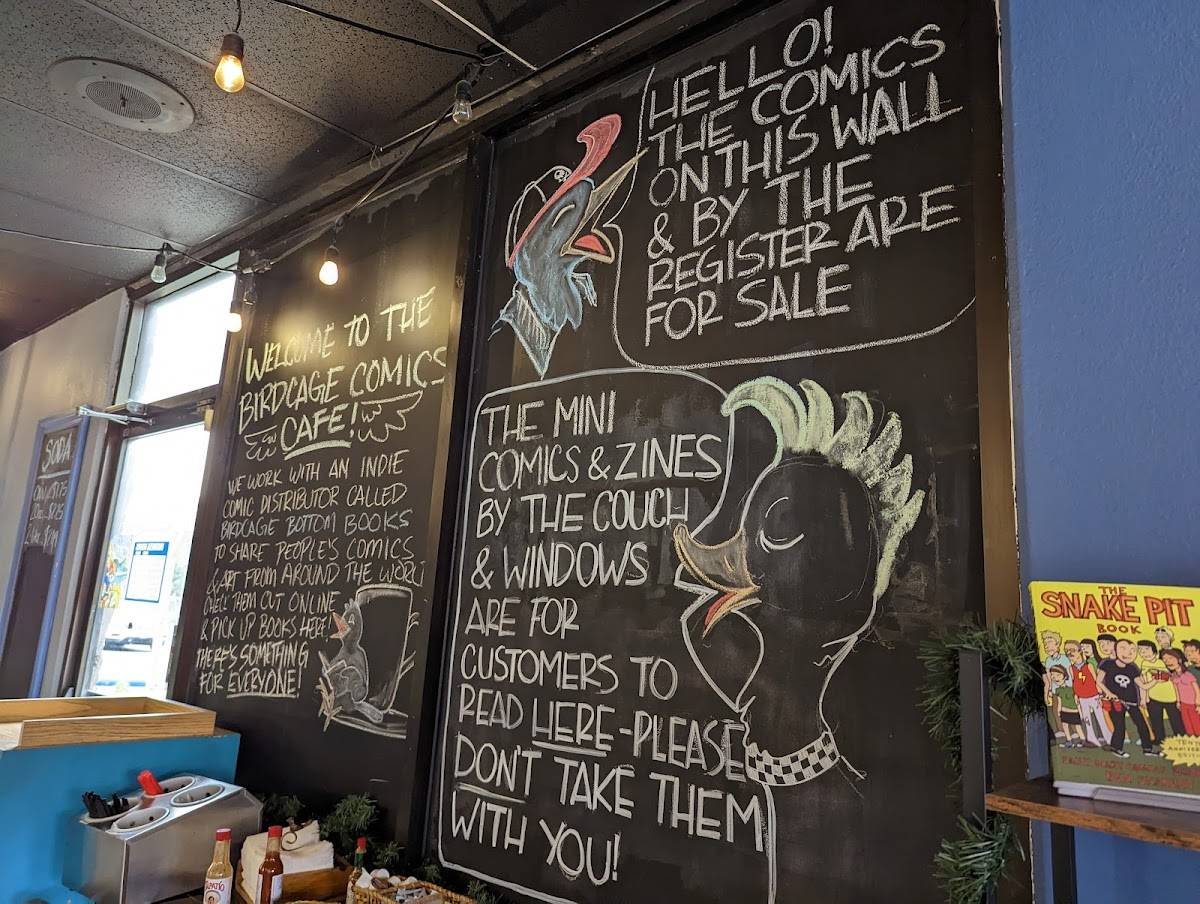 HELLO!
THE COMICS
ON THIS WALL
& BY THE
REGISTER ARE
FOR SALE
WELCOME TO THE
BIRDCAGE COMICS
CAFE!
WE WORK WITH AN INDIE
COMIC DISTRIBUTOR CALLED
BIRDCAGE BOTTOM BOOKS
TO SHARE PEOPLE'S COMICS
& ART FROM AROUND THE WORLD
CHECK THEM OUT ONLINE
& PICK UP BOOKS HERE!
THERE'S SOMETHING
FOR EVERYONE!
THE MINI
COMICS & ZINES
BY THE COUCH
& WINDOWS
ARE FOR
CUSTOMERS TO
READ HERE-PLEASE
DON'T TAKE THEM
WITH YOU!
SODA
THE
SNAKE PIT
BOOK
TAPATIO